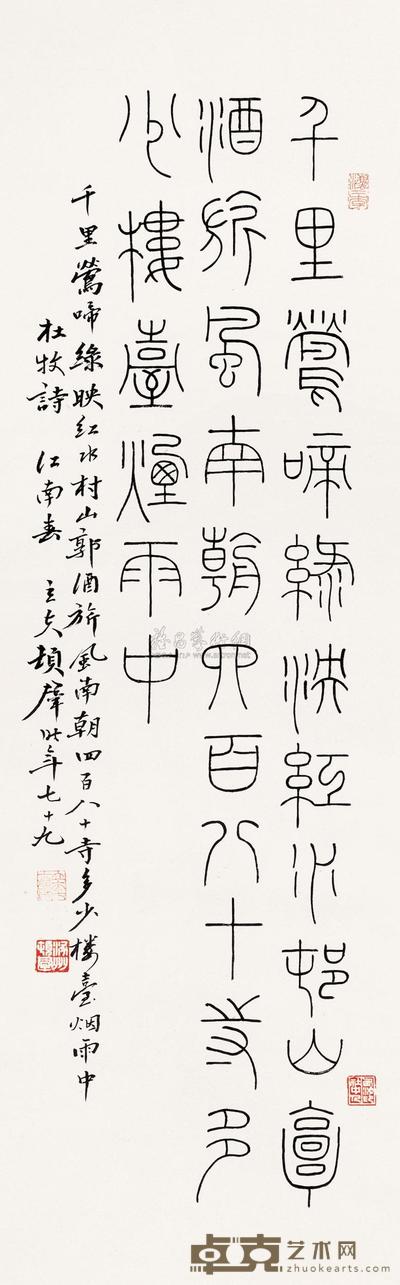 千里鶯啼綠映紅水邨山郭
酒旂風南朝四百八十寺多
少樓臺煙雨中
千里鶯啼綠映紅水村山郭酒旂風南朝四百八十寺多少楼臺烟雨中
杜牧詩 江南春 年七十九
卓克艺术网
www.zhuokearts.com